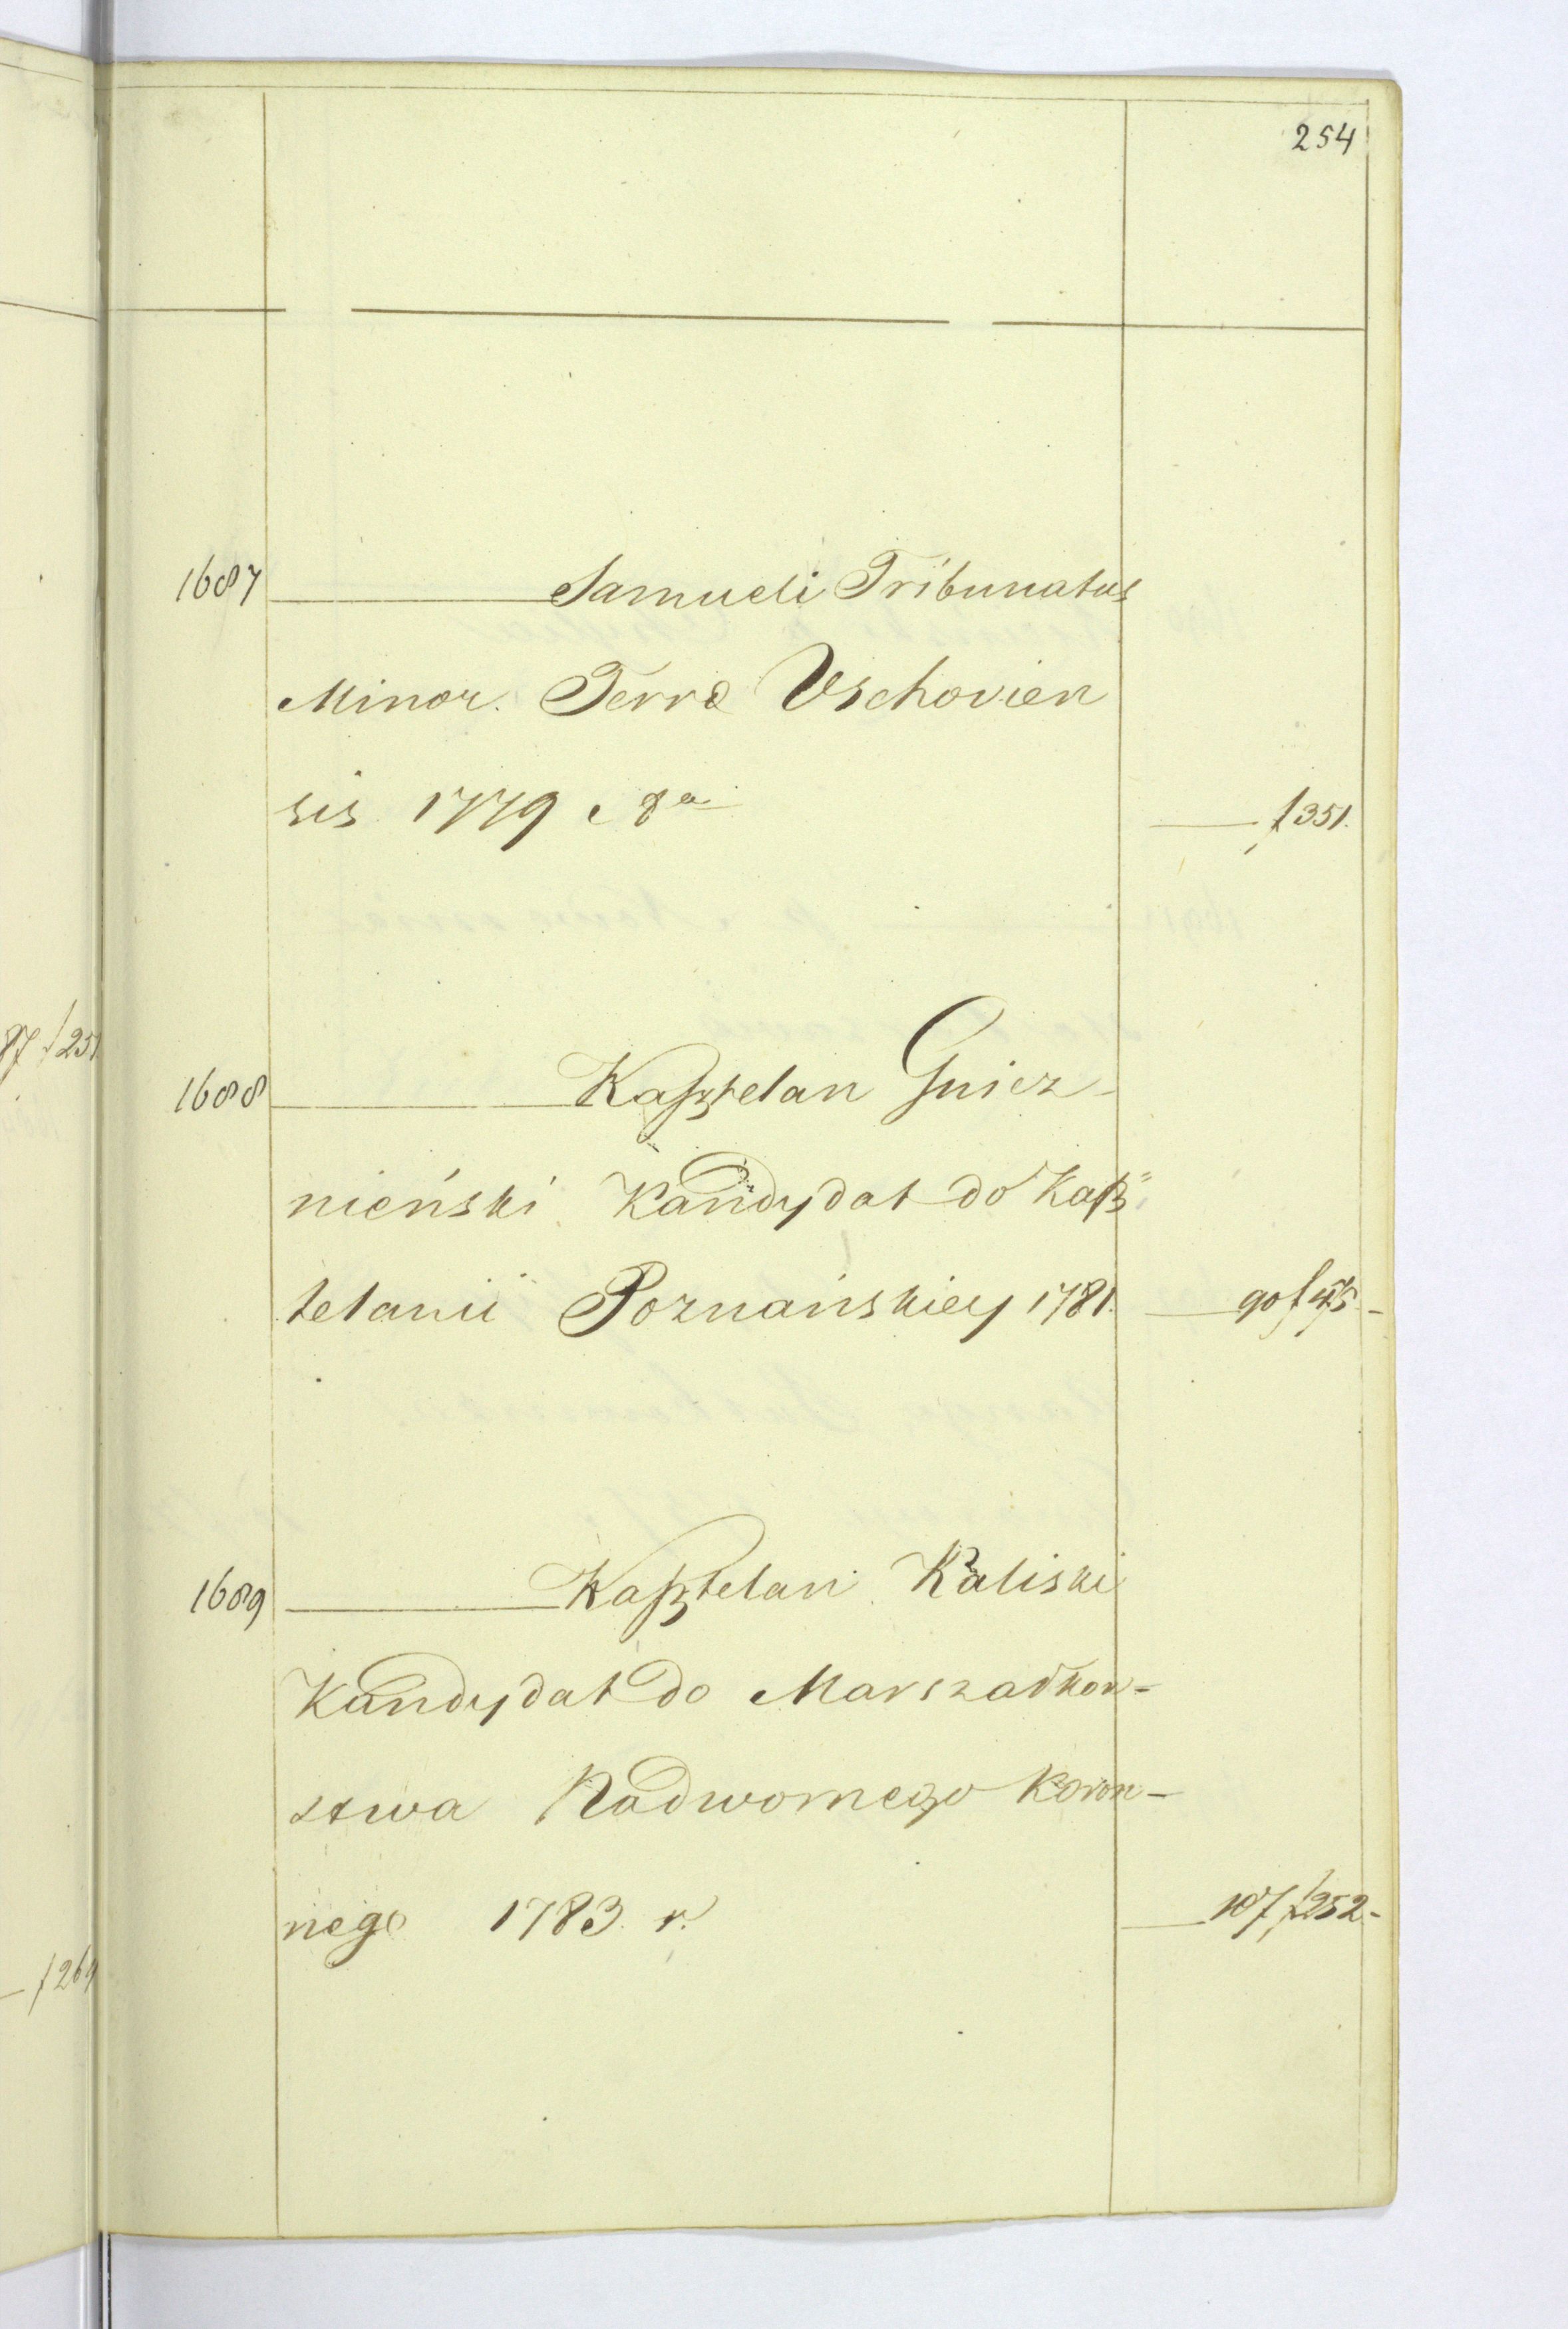 254
1687 Samueli Tribunatus
Minor. Terræ Vschovien
sis 1779 f 351.
1688 Kasztelan Gniez-
nieński Kandydat do Kasz
telanii Poznańskiey 1781. 90 f
1689 Kasztelan Kaliski
Kandydat do Marszałkow-
stwa Nadwornego Koron-
nego 1783. r. 107 f 252.-
f 251
f 264